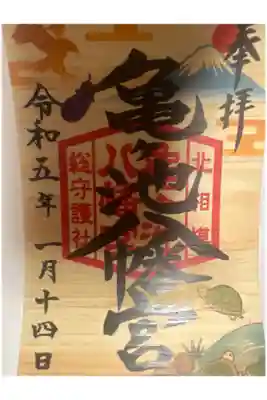 奉拝
亀ヶ池八幡宮
北相模
総守護社
令和五年 一月十四日